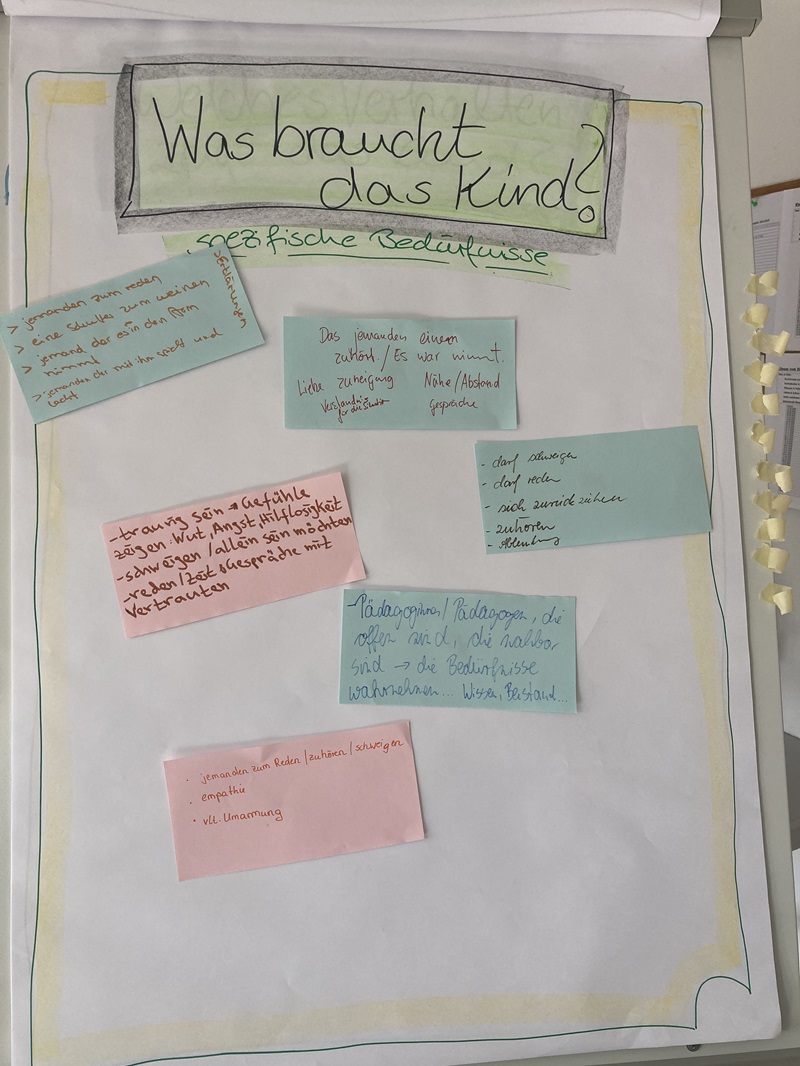 Was braucht
das Kind?
spezifische Bedürfnisse
> jemanden zum reden
> eine Schulter zum weinen
> jemand der es in den Arm
nimmt
> jemanden der mit ihm spielt und
lacht
Erklärungen
Das jemanden einem
zuhört. / Es war nimmt.
Liebe zuneigung
Nähe / Abstand
Verständnis
für die
Gespräche
- darf schweigen
- darf reden
- sich zurück ziehen
- zuhören
- Ablenkung
- traurig sein → Gefühle
zeigen: Wut, Angst, Hilflosigkeit
- schweigen / allein sein möchten
- reden / Zeit & Gespräche mit
Vertrauten
- Pädagoginnen / Pädagogen, die
offen sind, die nahbar
sind → die Bedürfnisse
wahrnehmen... Wissen, Beistand...
· jemanden zum Reden / zuhören / schweigen
· empathie
· vll. Umarmung